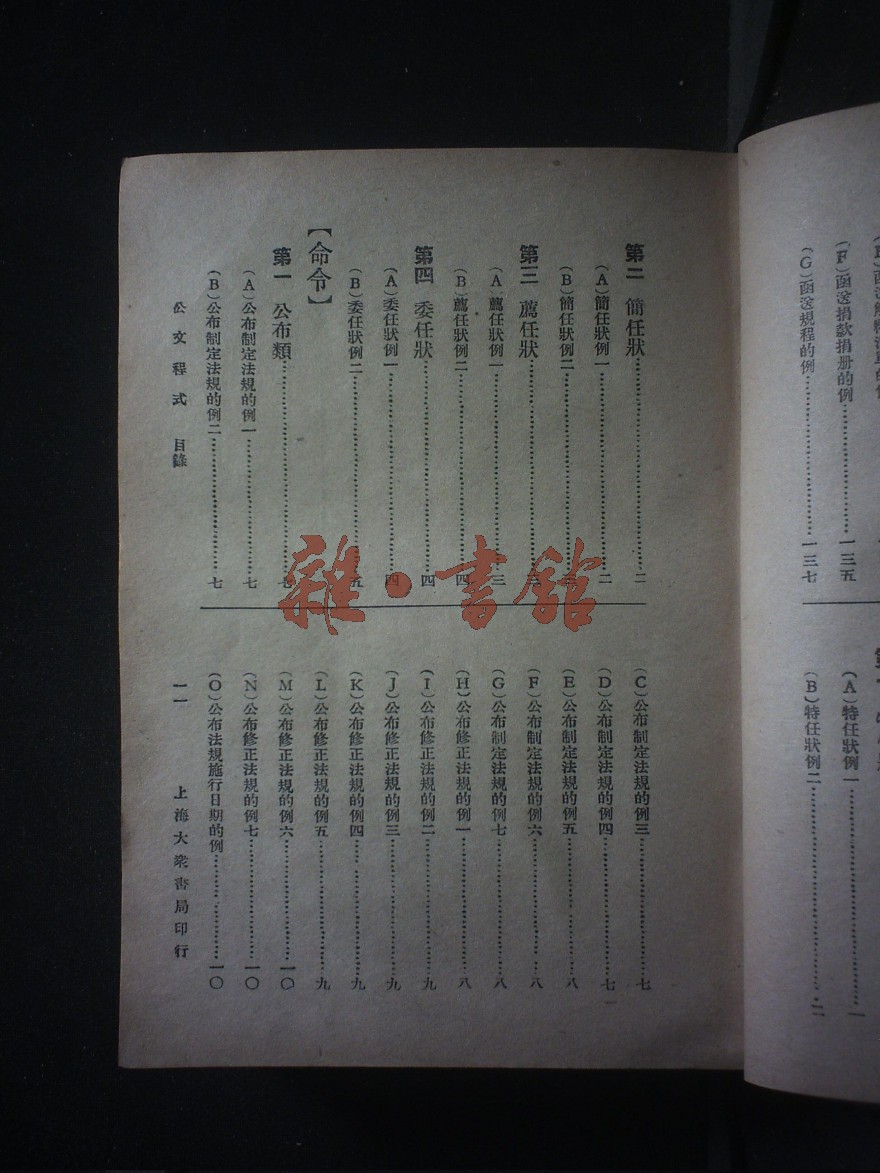 (F)函送捐款捐册的例……………一三五
(G)函送規程的例……………一三七
(A)特任狀例一……………一
(B)特任狀例二……………二
第二 簡任狀……………二
(A)簡任狀例一……………二
(B)簡任狀例二……………三
第三 薦任狀……………三
(A)薦任狀例一……………三
(B)薦任狀例二……………四
第四 委任狀……………四
(A)委任狀例一……………四
(B)委任狀例二……………五
【命令】
第一 公布類……………七
(A)公布制定法規的例一……………七
(B)公布制定法規的例二……………七
(C)公布制定法規的例三……………七
(D)公布制定法規的例四……………七
(E)公布制定法規的例五……………八
(F)公布制定法規的例六……………八
(G)公布制定法規的例七……………八
(H)公布修正法規的例一……………八
(I)公布修正法規的例二……………九
(J)公布修正法規的例三……………九
(K)公布修正法規的例四……………九
(L)公布修正法規的例五……………九
(M)公布修正法規的例六……………一〇
(N)公布修正法規的例七……………一〇
(O)公布法規施行日期的例……………一〇
公文程式 目錄
一一
上海大衆書局印行
雜·書館